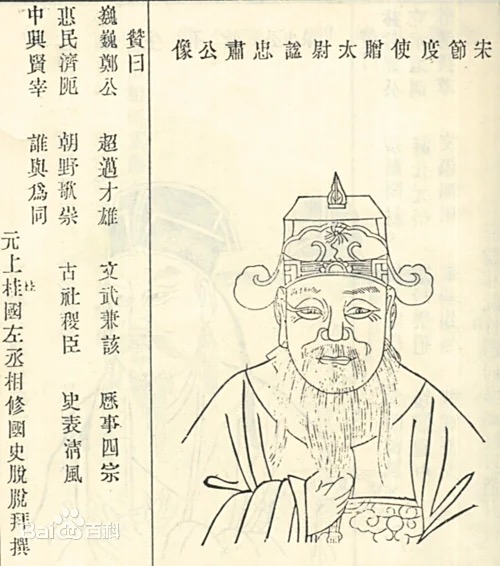 宋節度使贈太尉諡忠肅公像
贊曰
巍巍鄭公 超邁才雄 文武兼該 歷事四宗
惠民濟阨 朝野歌崇 古社稷臣 史表清風
中興賢宰 誰與爲同
元上桂國左丞相修國史脫脫拜撰
柱
Bai du 百科